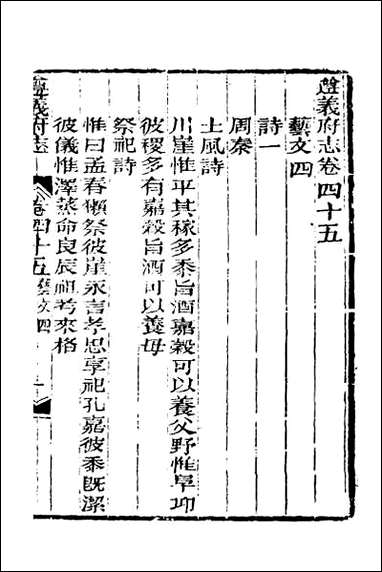 遵義府志卷四十五
藝文四
詩一
周秦
土風詩
川崖惟平其稼多黍旨酒嘉穀可以養父野惟阜卭
彼稷多有嘉穀旨酒可以養母
祭祀詩
惟曰孟春獺祭彼崖永言孝思享祀孔嘉彼黍既潔
彼儀惟澤蒸命良辰祖考來格
遵義府志 卷四十五藝文四 一